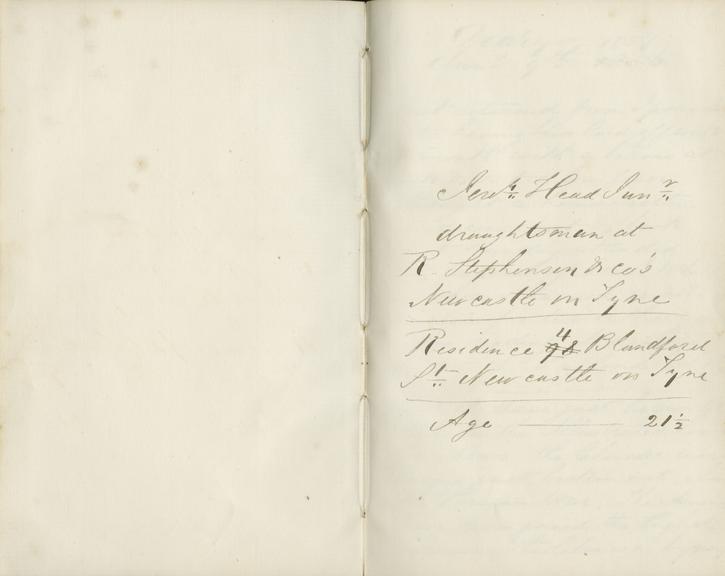 Jerh. Head Junr.
draughtsman at
R. Stephenson & co's
Newcastle on Tyne
Residence 11 98 Blandford
St. Newcastle on Tyne
Age 21 ½